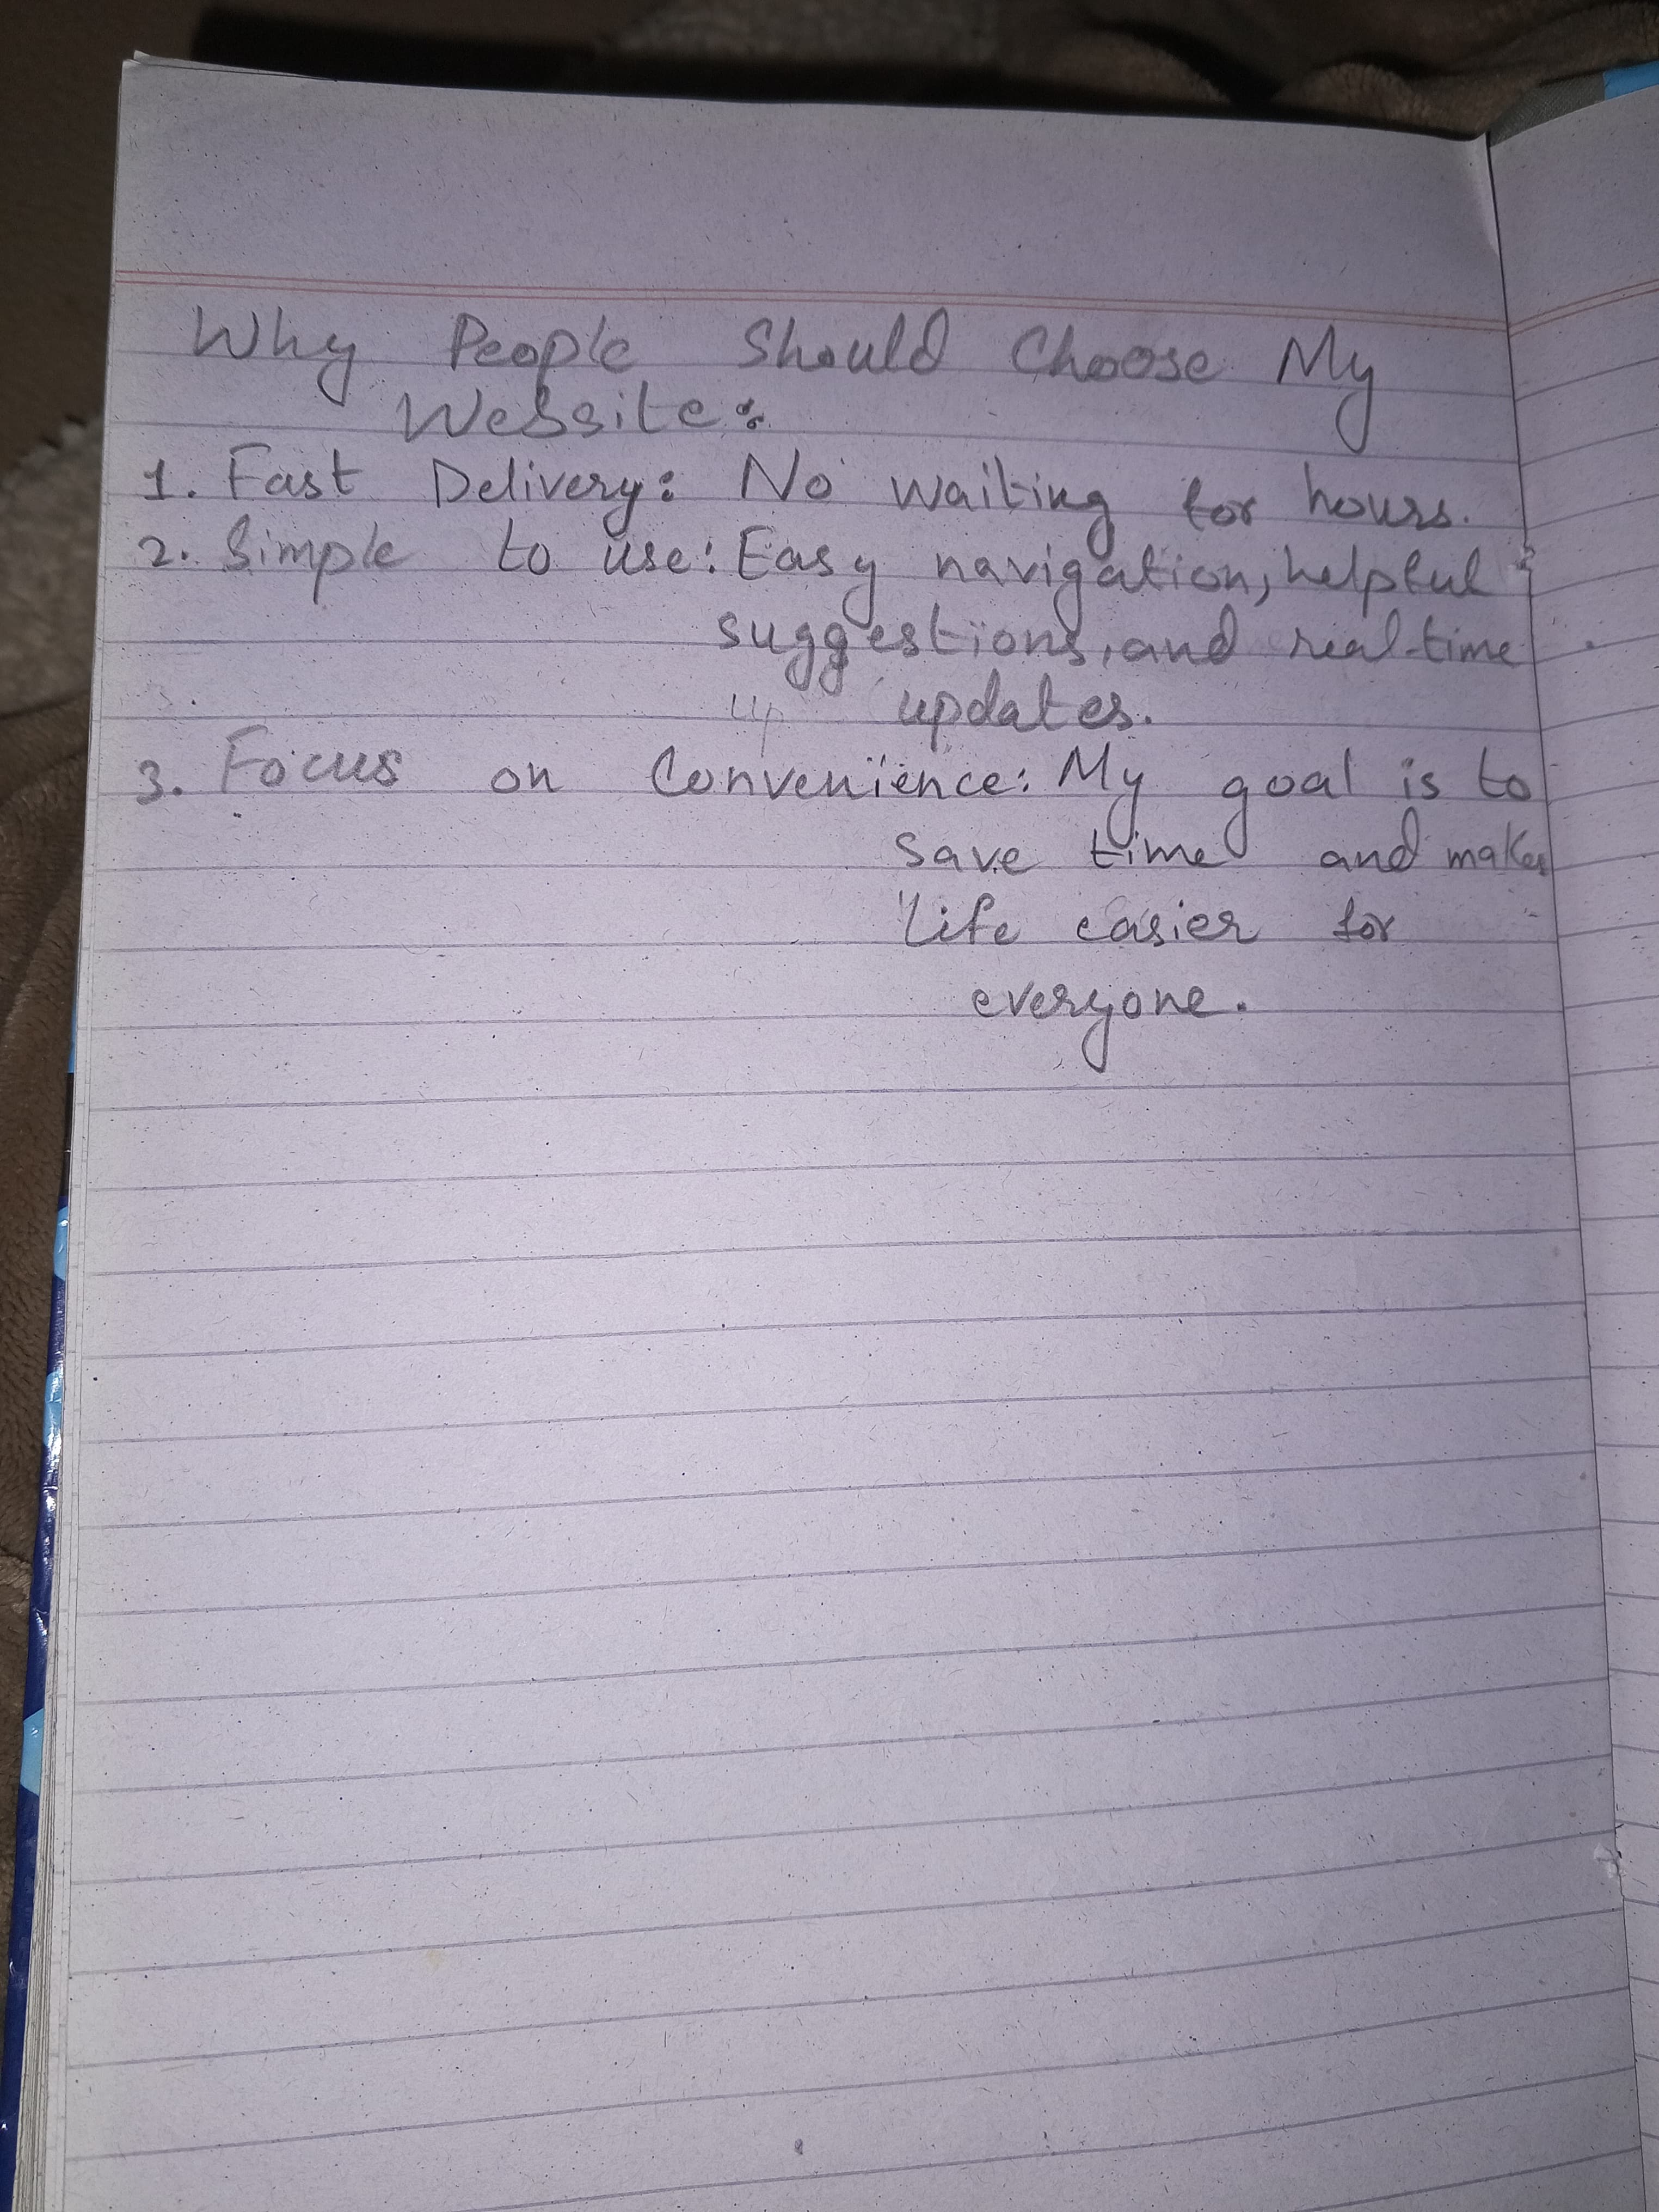 Why People Should Choose My
Website:
1. Fast Delivery: No waiting for hours.
2. Simple to use: Easy navigation, helpful
suggestions, and real-time
up updates.
3. Focus on Convenience: My goal is to
save time and makes
life easier for
everyone.